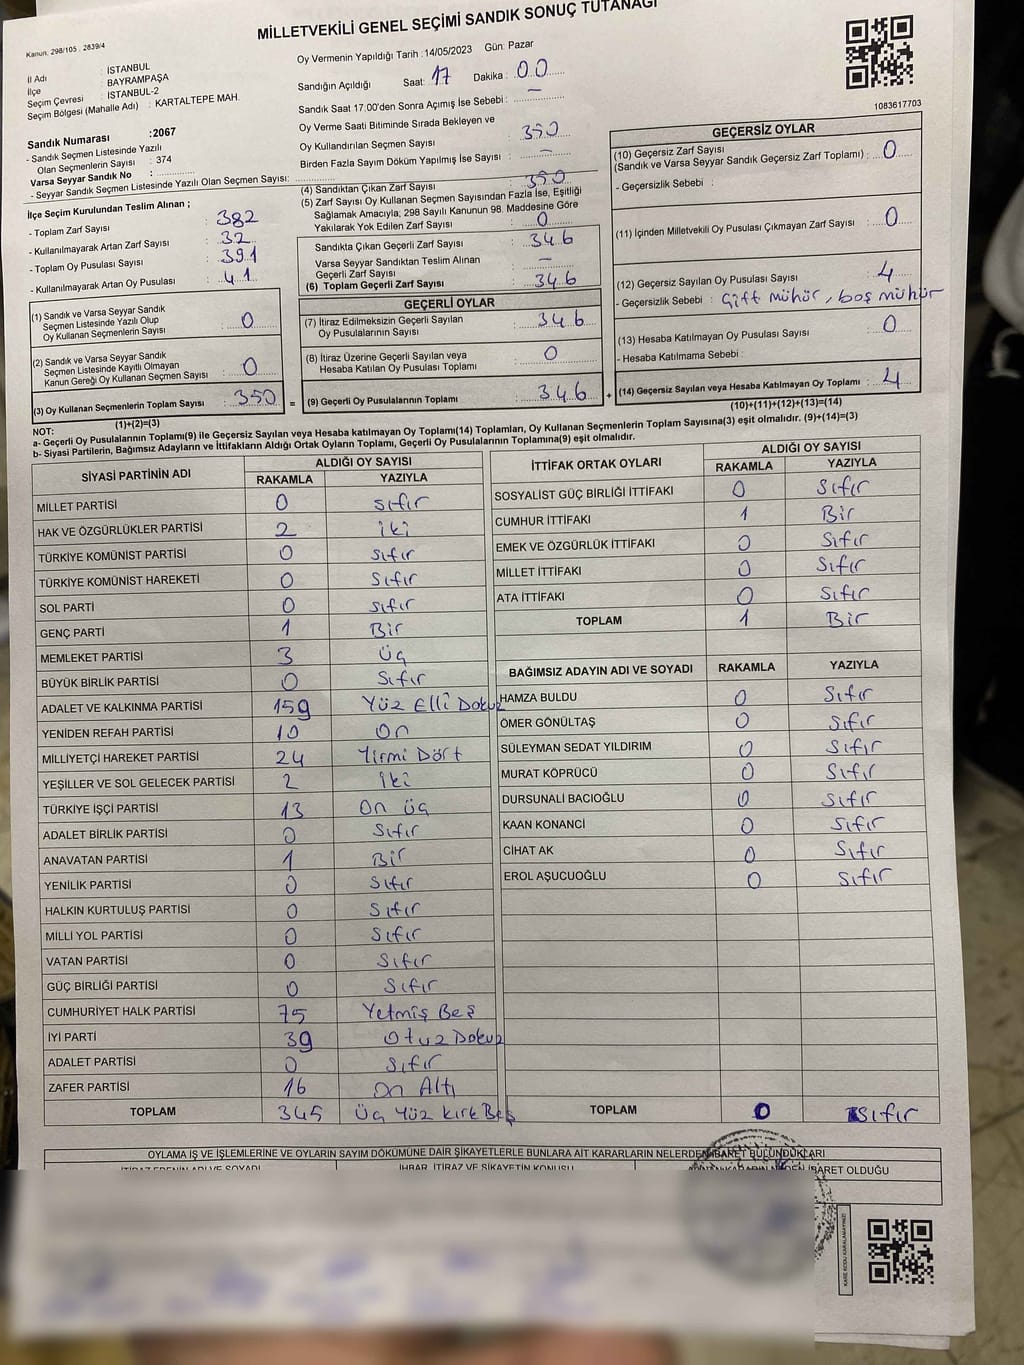 MİLLETVEKİLİ GENEL SEÇİMİ SANDIK SONUÇ TUTANAĞI
Kanun: 298/105 , 2839/4
İl Adı : İSTANBUL
İlçe : BAYRAMPAŞA
Seçim Çevresi : İSTANBUL-2
Seçim Bölgesi (Mahalle Adı) : KARTALTEPE MAH.
Sandık Numarası :2067
- Sandık Seçmen Listesinde Yazılı
Olan Seçmenlerin Sayısı : 374
Varsa Seyyar Sandık No :
- Seyyar Sandık Seçmen Listesinde Yazılı Olan Seçmen Sayısı:
Oy Vermenin Yapıldığı Tarih :14/05/2023 Gün: Pazar
Sandığın Açıldığı Saat: 17 Dakika : 00
Sandık Saat 17:00'den Sonra Açımış İse Sebebi : —
Oy Verme Saati Bitiminde Sırada Bekleyen ve
Oy Kullandırılan Seçmen Sayısı : 350
Birden Fazla Sayım Döküm Yapılmış İse Sayısı : —
1083617703
İlçe Seçim Kurulundan Teslim Alınan ;
- Toplam Zarf Sayısı : 382
- Kullanılmayarak Artan Zarf Sayısı : 32
- Toplam Oy Pusulası Sayısı : 391
- Kullanılmayarak Artan Oy Pusulası : 41
(1) Sandık ve Varsa Seyyar Sandık
Seçmen Listesinde Yazılı Olup
Oy Kullanan Seçmenlerin Sayısı : 0
(2) Sandık ve Varsa Seyyar Sandık
Seçmen Listesinde Kayıtlı Olmayan
Kanun Gereği Oy Kullanan Seçmen Sayısı : 0
(3) Oy Kullanan Seçmenlerin Toplam Sayısı : 350
(1)+(2)=(3)
(4) Sandıktan Çıkan Zarf Sayısı : 350
(5) Zarf Sayısı Oy Kullanan Seçmen Sayısından Fazla İse, Eşitliği
Sağlamak Amacıyla; 298 Sayılı Kanunun 98. Maddesine Göre
Yakılarak Yok Edilen Zarf Sayısı : 0
Sandıkta Çıkan Geçerli Zarf Sayısı : 346
Varsa Seyyar Sandıktan Teslim Alınan
Geçerli Zarf Sayısı : —
(6) Toplam Geçerli Zarf Sayısı : 346
GEÇERLİ OYLAR
(7) İtiraz Edilmeksizin Geçerli Sayılan
Oy Pusulalarının Sayısı : 346
(8) İtiraz Üzerine Geçerli Sayılan veya
Hesaba Katılan Oy Pusulası Toplamı : 0
= (9) Geçerli Oy Pusulalarının Toplamı : 346 +
GEÇERSİZ OYLAR
(10) Geçersiz Zarf Sayısı
(Sandık ve Varsa Seyyar Sandık Geçersiz Zarf Toplamı) : 0
- Geçersizlik Sebebi :
(11) İçinden Milletvekili Oy Pusulası Çıkmayan Zarf Sayısı : 0
(12) Geçersiz Sayılan Oy Pusulası Sayısı : 4
- Geçersizlik Sebebi : Çift mühür, boş mühür
(13) Hesaba Katılmayan Oy Pusulası Sayısı : 0
- Hesaba Katılmama Sebebi :
(14) Geçersiz Sayılan veya Hesaba Katılmayan Oy Toplamı : 4
(10)+(11)+(12)+(13)=(14)
NOT:
a- Geçerli Oy Pusulalarının Toplamı(9) ile Geçersiz Sayılan veya Hesaba katılmayan Oy Toplamı(14) Toplamları, Oy Kullanan Seçmenlerin Toplam Sayısına(3) eşit olmalıdır. (9)+(14)=(3)
b- Siyasi Partilerin, Bağımsız Adayların ve İttifakların Aldığı Ortak Oyların Toplamı, Geçerli Oy Pusulalarının Toplamına(9) eşit olmalıdır.
SİYASİ PARTİNİN ADI ALDIĞI OY SAYISI
RAKAMLA YAZIYLA
MİLLET PARTİSİ 0 sıfır
HAK VE ÖZGÜRLÜKLER PARTİSİ 2 iki
TÜRKİYE KOMÜNİST PARTİSİ 0 sıfır
TÜRKİYE KOMÜNİST HAREKETİ 0 Sıfır
SOL PARTİ 0 sıfır
GENÇ PARTİ 1 Bir
MEMLEKET PARTİSİ 3 Üç
BÜYÜK BİRLİK PARTİSİ 0 Sıfır
ADALET VE KALKINMA PARTİSİ 159 Yüz Elli Dokuz
YENİDEN REFAH PARTİSİ 10 On
MİLLİYETÇİ HAREKET PARTİSİ 24 Yirmi Dört
YEŞİLLER VE SOL GELECEK PARTİSİ 2 iki
TÜRKİYE İŞÇİ PARTİSİ 13 On üç
ADALET BİRLİK PARTİSİ 0 Sıfır
ANAVATAN PARTİSİ 1 Bir
YENİLİK PARTİSİ 0 Sıfır
HALKIN KURTULUŞ PARTİSİ 0 Sıfır
MİLLİ YOL PARTİSİ 0 Sıfır
VATAN PARTİSİ 0 Sıfır
GÜÇ BİRLİĞİ PARTİSİ 0 Sıfır
CUMHURİYET HALK PARTİSİ 75 Yetmiş Beş
İYİ PARTİ 39 Otuz Dokuz
ADALET PARTİSİ 0 Sıfır
ZAFER PARTİSİ 16 On Altı
TOPLAM 345 Üç Yüz Kırk Beş
İTTİFAK ORTAK OYLARI ALDIĞI OY SAYISI
RAKAMLA YAZIYLA
SOSYALİST GÜÇ BİRLİĞİ İTTİFAKI 0 Sıfır
CUMHUR İTTİFAKI 1 Bir
EMEK VE ÖZGÜRLÜK İTTİFAKI 0 Sıfır
MİLLET İTTİFAKI 0 Sıfır
ATA İTTİFAKI 0 Sıfır
TOPLAM 1 Bir
BAĞIMSIZ ADAYIN ADI VE SOYADI RAKAMLA YAZIYLA
HAMZA BULDU 0 Sıfır
ÖMER GÖNÜLTAŞ 0 Sıfır
SÜLEYMAN SEDAT YILDIRIM 0 Sıfır
MURAT KÖPRÜCÜ 0 Sıfır
DURSUNALİ BACIOĞLU 0 Sıfır
KAAN KONANCİ 0 Sıfır
CİHAT AK 0 Sıfır
EROL AŞUCUOĞLU 0 Sıfır
TOPLAM 0 Sıfır
OYLAMA İŞ VE İŞLEMLERİNE VE OYLARIN SAYIM DÖKÜMÜNE DAİR ŞİKAYETLERLE BUNLARA AİT KARARLARIN NELERDEN İBARET BULUNDUKLARI
İTİRAZ EDENİN ADI VE SOYADI İHBAR, İTİRAZ VE ŞİKAYETİN KONUSU İBARET OLDUĞU
KARE KODU KARALAMAYINIZ!